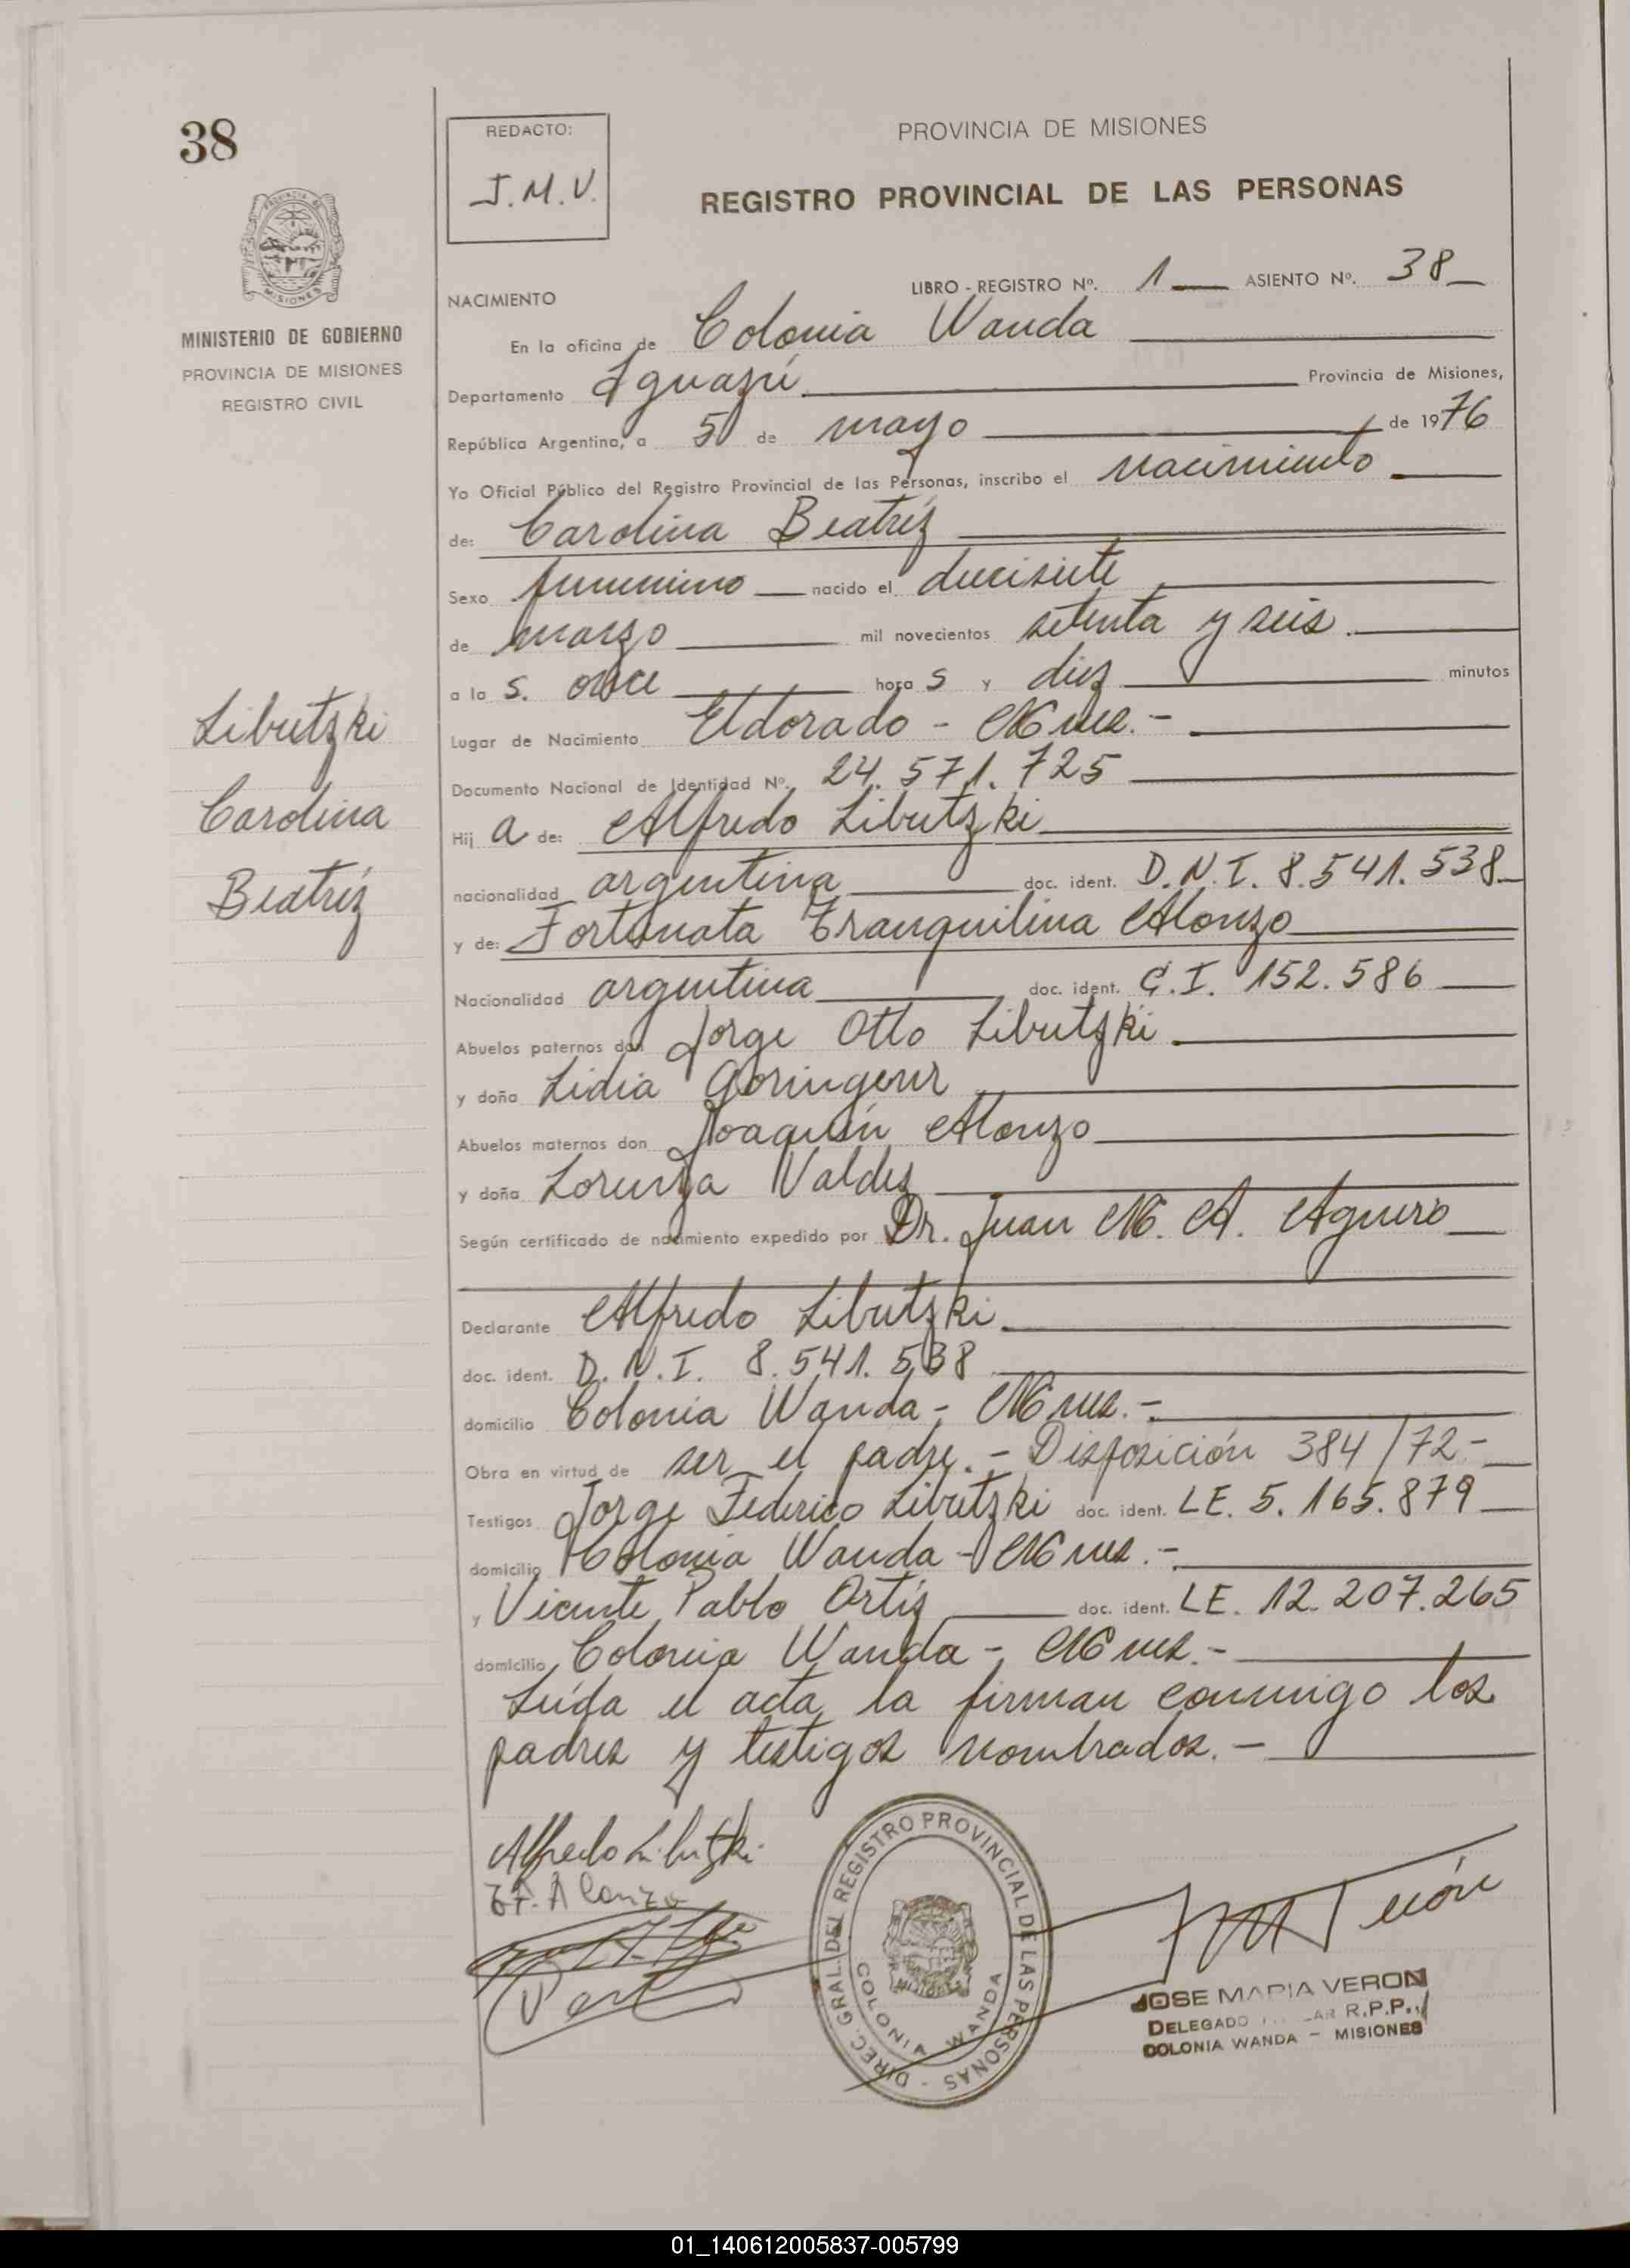 38
REDACTO:
J.M.V.
PROVINCIA DE MISIONES
REGISTRO PROVINCIAL DE LAS PERSONAS
PROVINCIA DE
MISIONES
MINISTERIO DE GOBIERNO
PROVINCIA DE MISIONES
REGISTRO CIVIL
LIBRO - REGISTRO Nº. 1 ASIENTO Nº. 38
NACIMIENTO
En la oficina de Colonia Wanda
Departamento Iguazú Provincia de Misiones,
República Argentina, a 5 de mayo de 1976
Yo Oficial Público del Registro Provincial de las Personas, inscribo el nacimiento
de: Carolina Beatríz
Sexo femenino nacido el diecisiete
de marzo mil novecientos setenta y seis.
a la s. once hora s y diez minutos
Lugar de Nacimiento Eldorado - Mnes.-
Documento Nacional de Identidad Nº. 24.571.725
Libutzki
Carolina
Beatríz
Hij a de: Alfredo Libutzki
nacionalidad argentina doc. ident. D.N.I. 8.541.538
y de: Fortunata Tranquilina Alonzo
Nacionalidad argentina doc. ident. C.I. 152.586
Abuelos paternos don Jorge Otto Libutzki
y doña Lidia
Abuelos maternos don Joaquín Alonzo
y doña Lorenza Valdes
Según certificado de nacimiento expedido por Dr. Juan M. A. Aguero
Declarante Alfredo Libutzki
doc. ident. D.N.I. 8.541.538
domicilio Colonia Wanda - Mnes.-
Obra en virtud de ser el padre.- Disposición 384/72-
Testigos Jorge Federico Libutzki doc. ident. LE. 5.165.879
domicilio Colonia Wanda - Mnes.-
y Vicente Pablo Ortíz doc. ident. LE. 12.207.265
domicilio Colonia Wanda - Mnes.-
Leída el acta, la firman conmigo los
padres y testigos nombrados.-
Alfredo Libutzki
F.T. Alonzo
DIREC. GRAL. DEL REGISTRO PROVINCIAL DE LAS PERSONAS -
COLONIA WANDA
JOSE MARIA VERON
DELEGADO R.P.P.
COLONIA WANDA - MISIONES
01_140612005837-005799